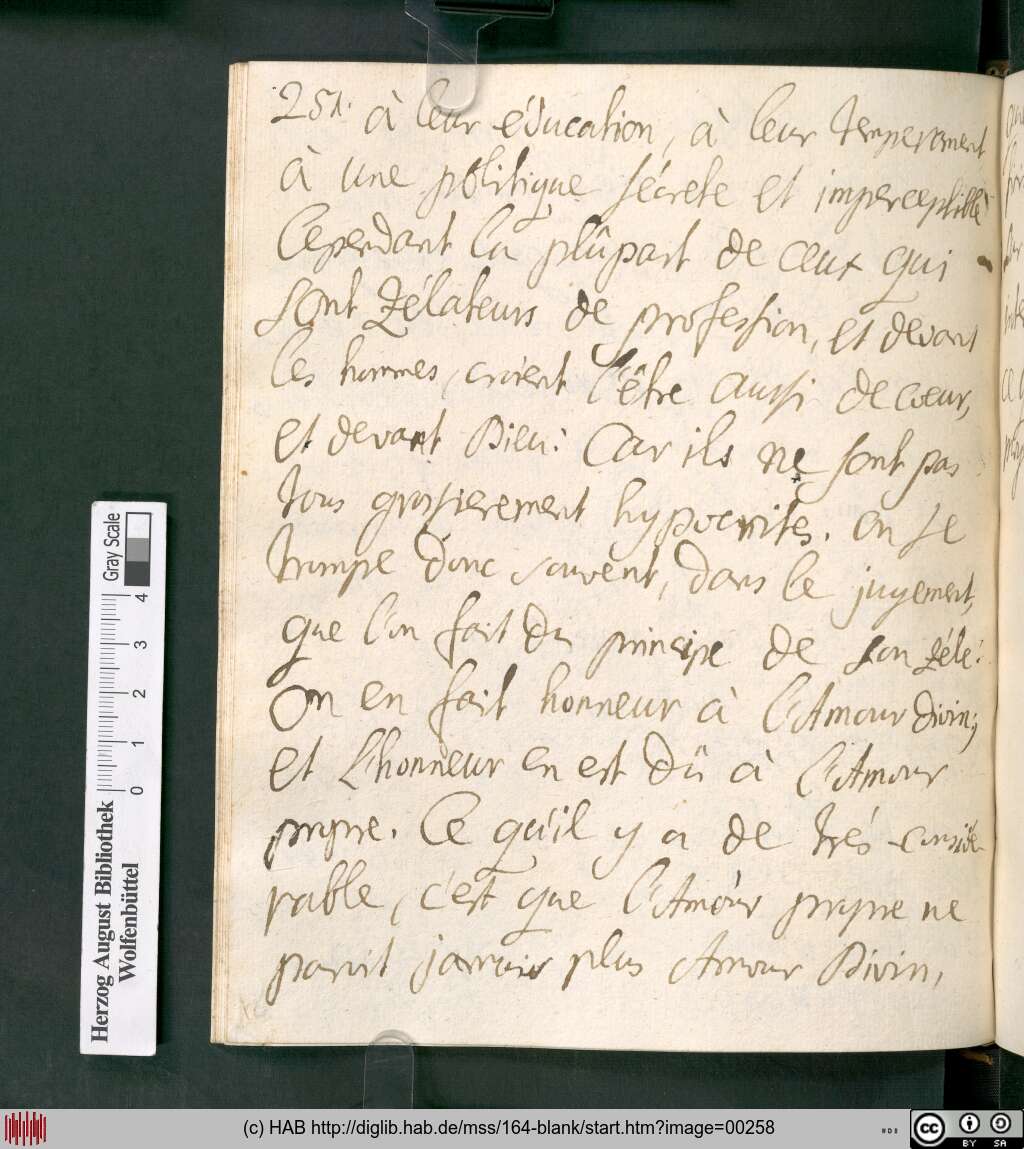 251. à leur éducation, à leur temperament
à une politique sécrete et imperceptible
Cependant la plûpart de ceux qui
sont zélateurs de profession, et devant
les hommes, croient l'être aussi de coeur,
et devant Dieu: Car ils ne sont pas
tous grossierement hypocrites. On se
trompe donc souvent, dans le jugement,
que l'on fait du principe de son zéle:
On en fait honneur à l'Amour divin;
et L'honneur en est dû à l'Amour
propre. Ce qu'il y a de trés-conside-
rable, c'est que l'Amour propre ne
paroit jamais plus Amour Divin,
Gray Scale
0 1 2 3 4
Herzog August Bibliothek
Wolfenbüttel
(c) HAB http://diglib.hab.de/mss/164-blank/start.htm?image=00258
cc BY SA